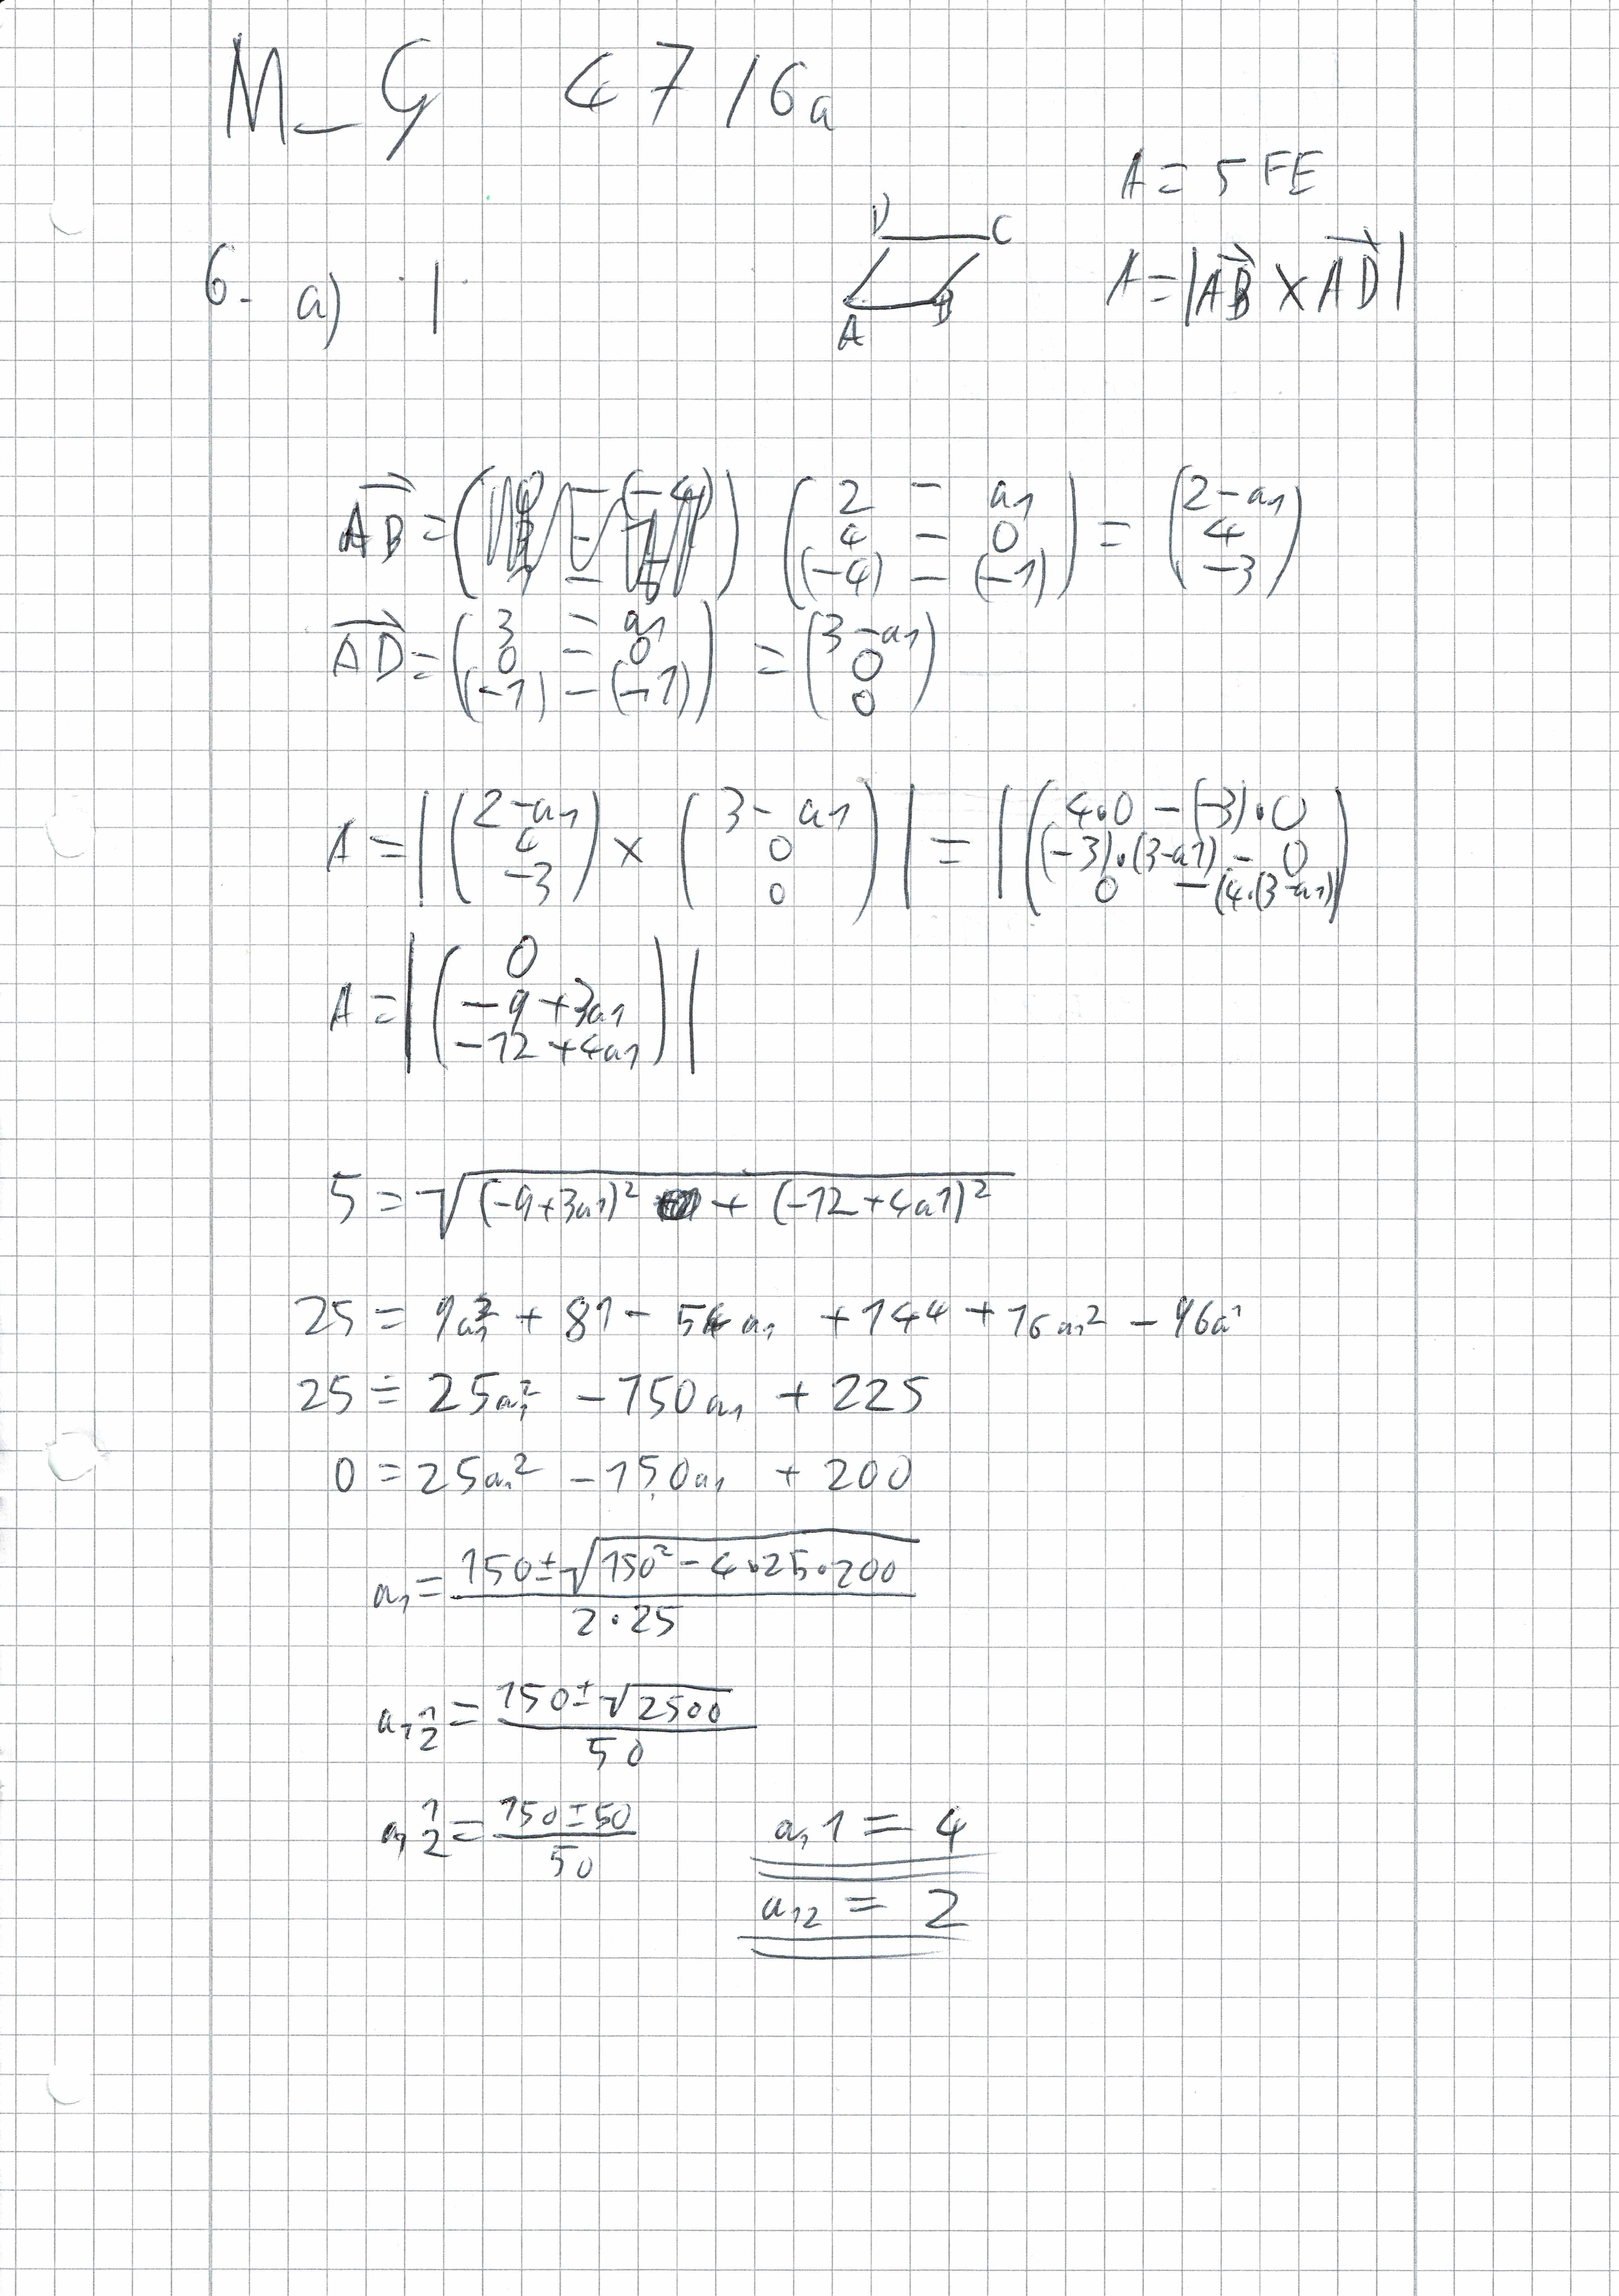 M_G 47/6a
A = 5 FE
D C
6. a) A = |AB × AD|
A B
AB = ( 2 - a1 ) = ( 2-a1 )
4 - 0 4
(-4) - (-1) -3
AD = ( 3 - a1 ) = ( 3-a1 )
0 - 0 0
(-1) - (-1) 0
A = | ( 2-a1 ) × ( 3-a1 ) | = | ( 4·0 - (-3)·0 )
4 0 (-3)·(3-a1) - 0
-3 0 0 - (4·(3-a1))
A = | ( 0 ) |
-9 + 3a1
-12 + 4a1
5 = √((-9+3a1)² + (-12+4a1)²)
25 = 9a1² + 81 - 54a1 + 144 + 16a1² - 96a1
25 = 25a1² - 150a1 + 225
0 = 25a1² - 150a1 + 200
a1 = (150 ± √(150² - 4·25·200)) / (2·25)
a1 1/2 = (150 ± √2500) / 50
a1 1/2 = (150 ± 50) / 50
a1 1 = 4
a12 = 2